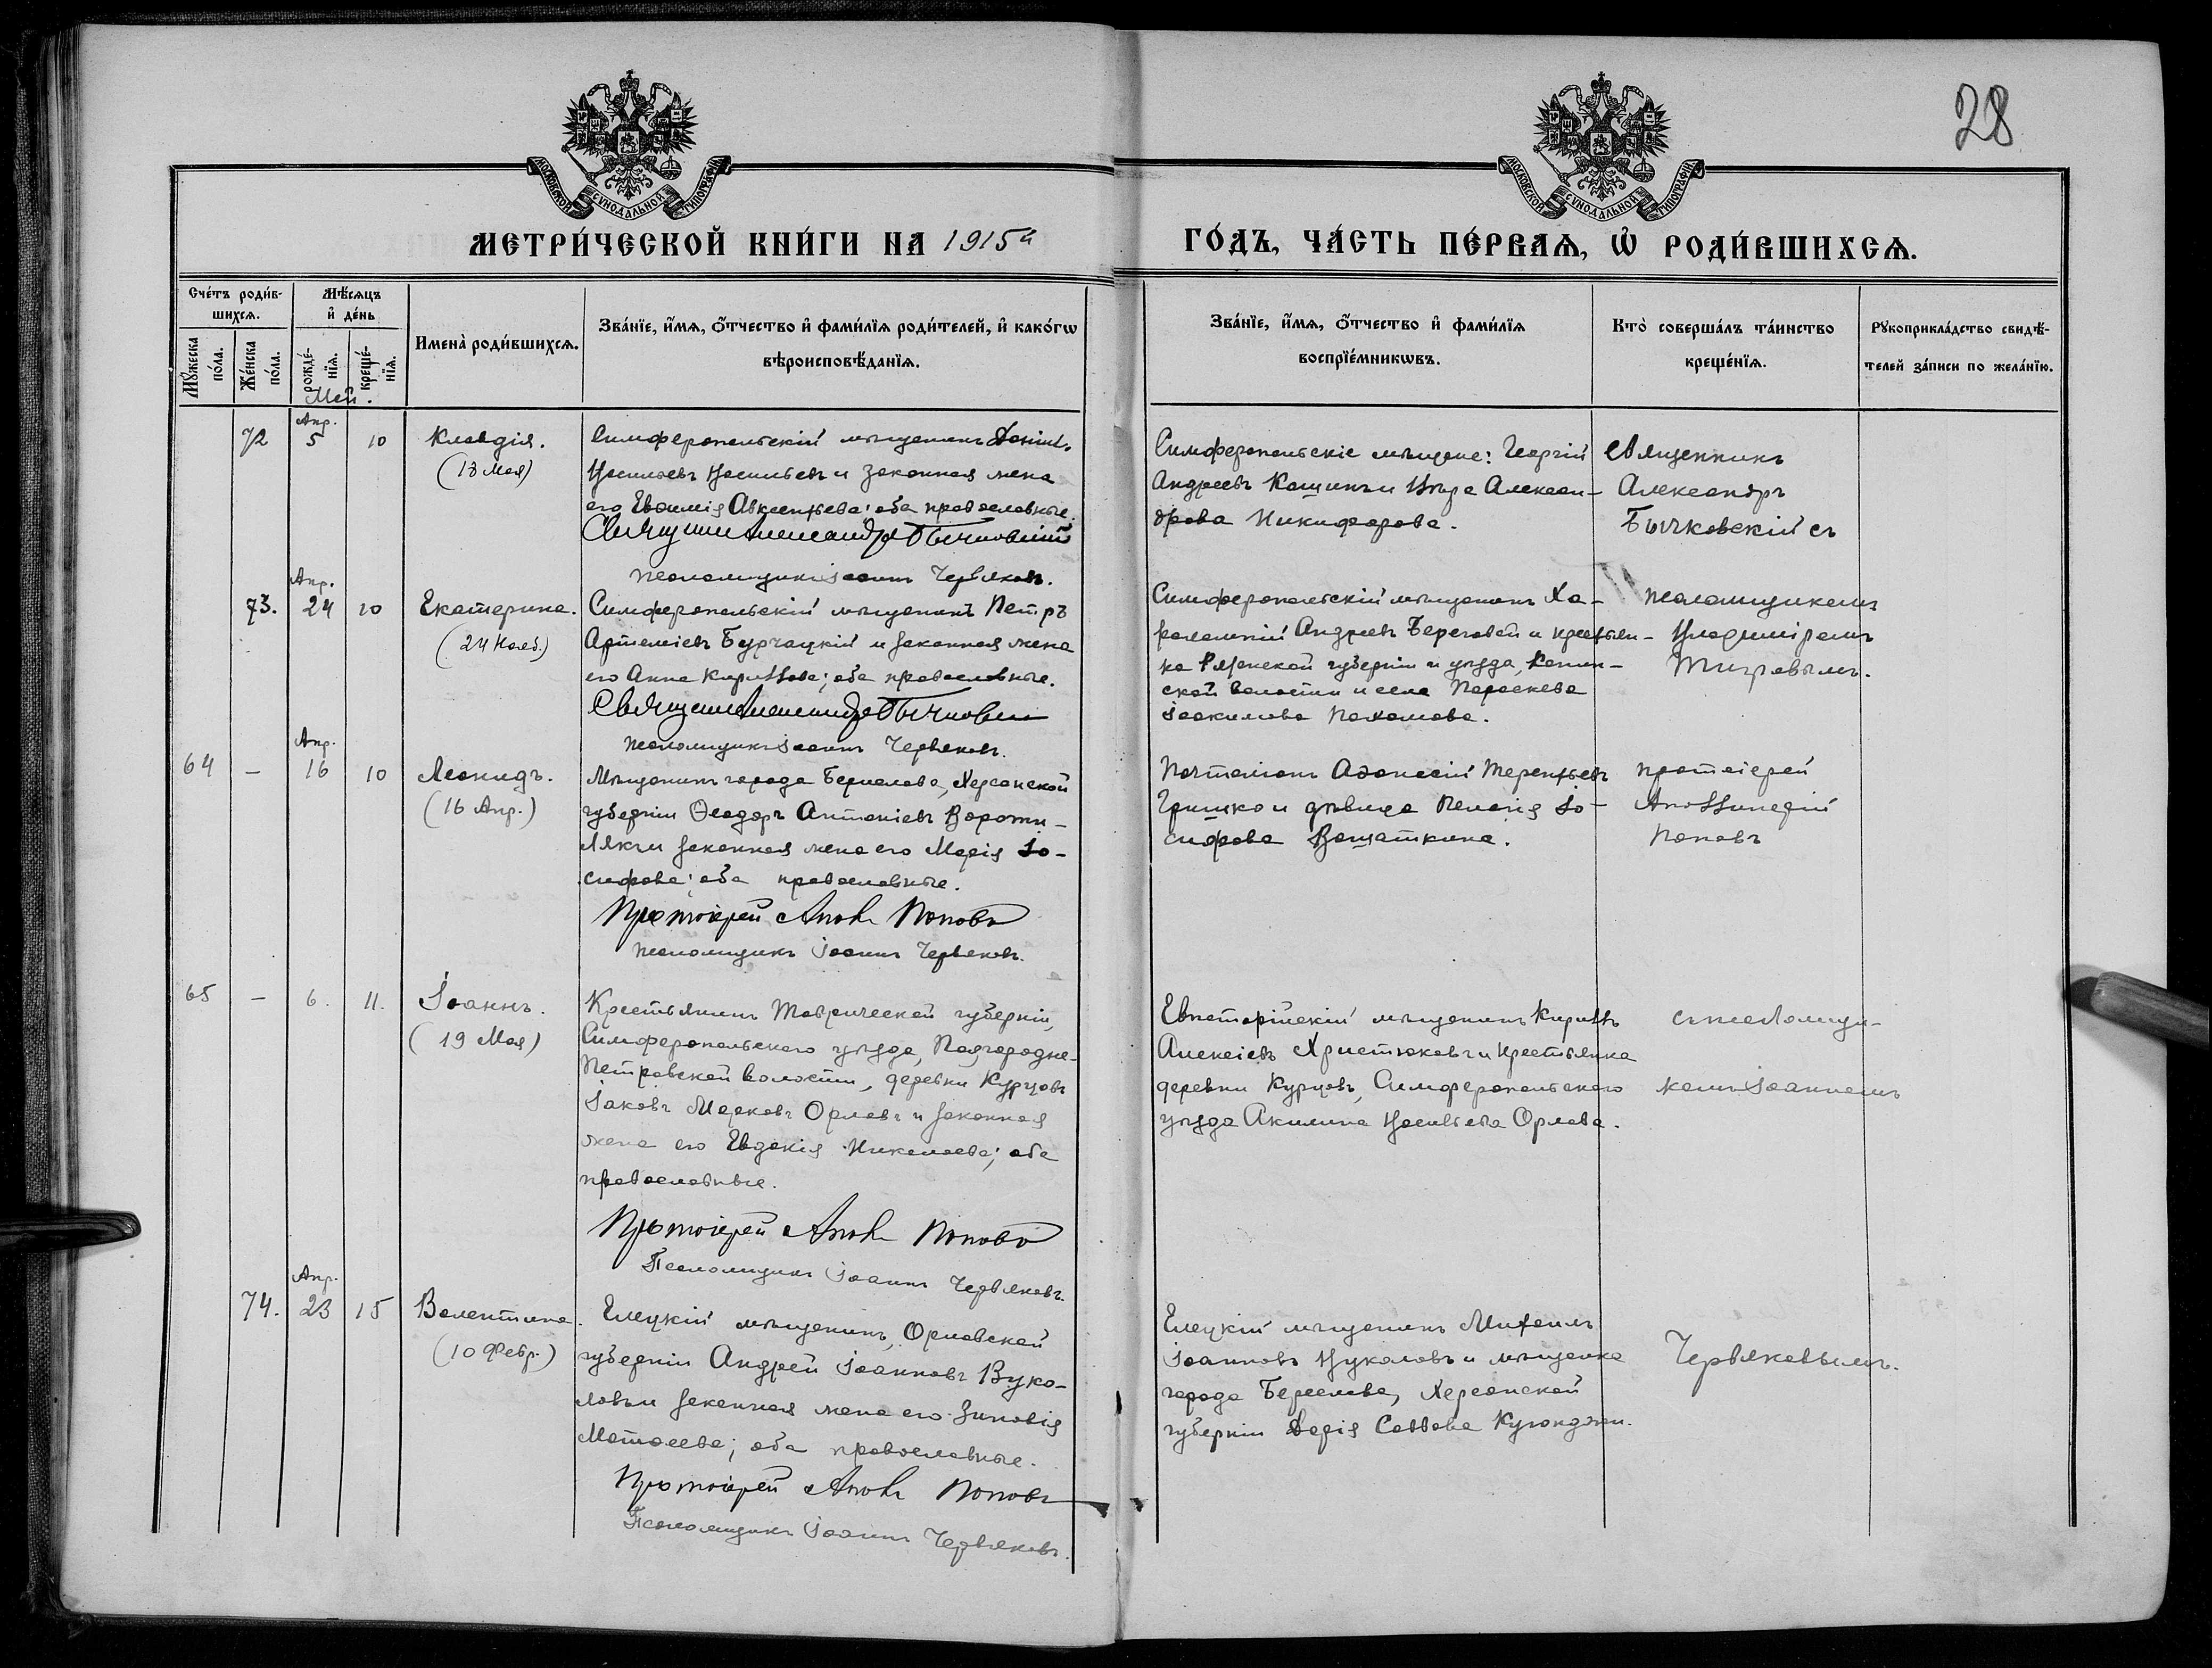 28
МОСКОВСКОЙ СУНОДАЛЬНОЙ ТИПОГРАФІИ
МОСКОВСКОЙ СУНОДАЛЬНОЙ ТИПОГРАФІИ
МЕТРИ́ЧЕСКОЙ КНИ́ГИ НА 1915й
ГО́ДЪ, ЧА́СТЬ ПЕ́РВАѦ, Ѿ РОДИ́ВШИХСѦ.
Сче́тъ роди́в-
шихсѧ.
Мꙋ́жеска по́ла.
Же́нска по́ла.
Мѣ́сѧцъ
и҆ де́нь
рожде́-
нїѧ.
креще́-
нїѧ.
Имена̀ роди́вшихсѧ.
Зва́нїе, и҆́мѧ, ѻ҆́тчество и҆ фами́лїѧ роди́телей, и҆ како́гѡ
вѣроисповѣ́данїѧ.
Зва́нїе, и҆́мѧ, ѻ҆́тчество и҆ фами́лїѧ
воспрїе́мникѡвъ.
Кто̀ соверша́лъ та́инство
креще́нїѧ.
Рꙋкоприкла́дство свидѣ́-
телей за́писи по жела́нїю.
Май.
Апр.
72 5 10 Клавдія.
(18 Мая)
Симферопольскій мѣщанинъ
Васильевъ Васильевъ и законная жена
его Евфимія Авксентьева; оба православные.
Священ. Александръ Бычковскій
Псаломщикъ Іоаннъ Червяковъ.
Симферопольскіе мѣщане: Георгій
Андреевъ Кашинъ и Вѣра Алексан-
дрова Никифорова.
Священникъ
Александръ
Бычковскій съ
Апр.
73. 24 10 Екатерина.
(24 Нояб.)
Симферопольскій мѣщанинъ Петръ
Артеміевъ Бурчацкій и законная жена
его Анна Кириллова; оба православные.
Священ. Александръ Бычковскій
Псаломщикъ Іоаннъ Червяковъ.
Симферопольскій мѣщанинъ Ха-
ралампій Андреевъ Береговой и крестьян-
ка Рязанской губерніи и уѣзда,
ской волости и села Параскева
Іоакимова Пахомова.
псаломщикомъ
Владиміромъ
Апр.
64 — 16 10 Леонидъ.
(16 Апр.)
Мѣщанинъ города Берислава, Херсонской
губерніи Ѳеодоръ Антоніевъ Вороти-
лякъ и законная жена его Марія Іо-
сифова; оба православные.
Протоіерей Апол. Поповъ
Псаломщикъ Іоаннъ Червяковъ.
Почталіонъ Аѳанасій Терентьевъ
Гришко и дѣвица Пелагія Іо-
сифова Ващаткина.
протоіерей
Аполлинарій
Поповъ
65 — 6. 11. Іоаннъ.
(19 Мая)
Крестьянинъ Таврической губерніи,
Симферопольскаго уѣзда, Подгородне-
Петровской волости, деревни Курцовъ
Іаковъ Марковъ Орловъ и законная
жена его Евдокія Николаева; оба
православные.
Протоіерей Апол. Поповъ
Псаломщикъ Іоаннъ Червяковъ.
Евпаторійскій мѣщанинъ Кириллъ
Алексіевъ Христюковъ и крестьянка
деревни Курцовъ, Симферопольскаго
уѣзда Акилина Васильева Орлова.
съ псаломщи-
комъ Іоанномъ
Апр.
74. 23 15 Валентина.
(10 Февр.)
Елецкій мѣщанинъ, Орловской
губерніи Андрей Іоанновъ Вуко-
ловъ и законная жена его Зиновія
Матѳеева; оба православные.
Протоіерей Апол. Поповъ
Псаломщикъ Іоаннъ Червяковъ.
Елецкій мѣщанинъ Михаилъ
Іоанновъ Вуколовъ и мѣщанка
города Берислава, Херсонской
губерніи Дарія Саввова
Червяковымъ.